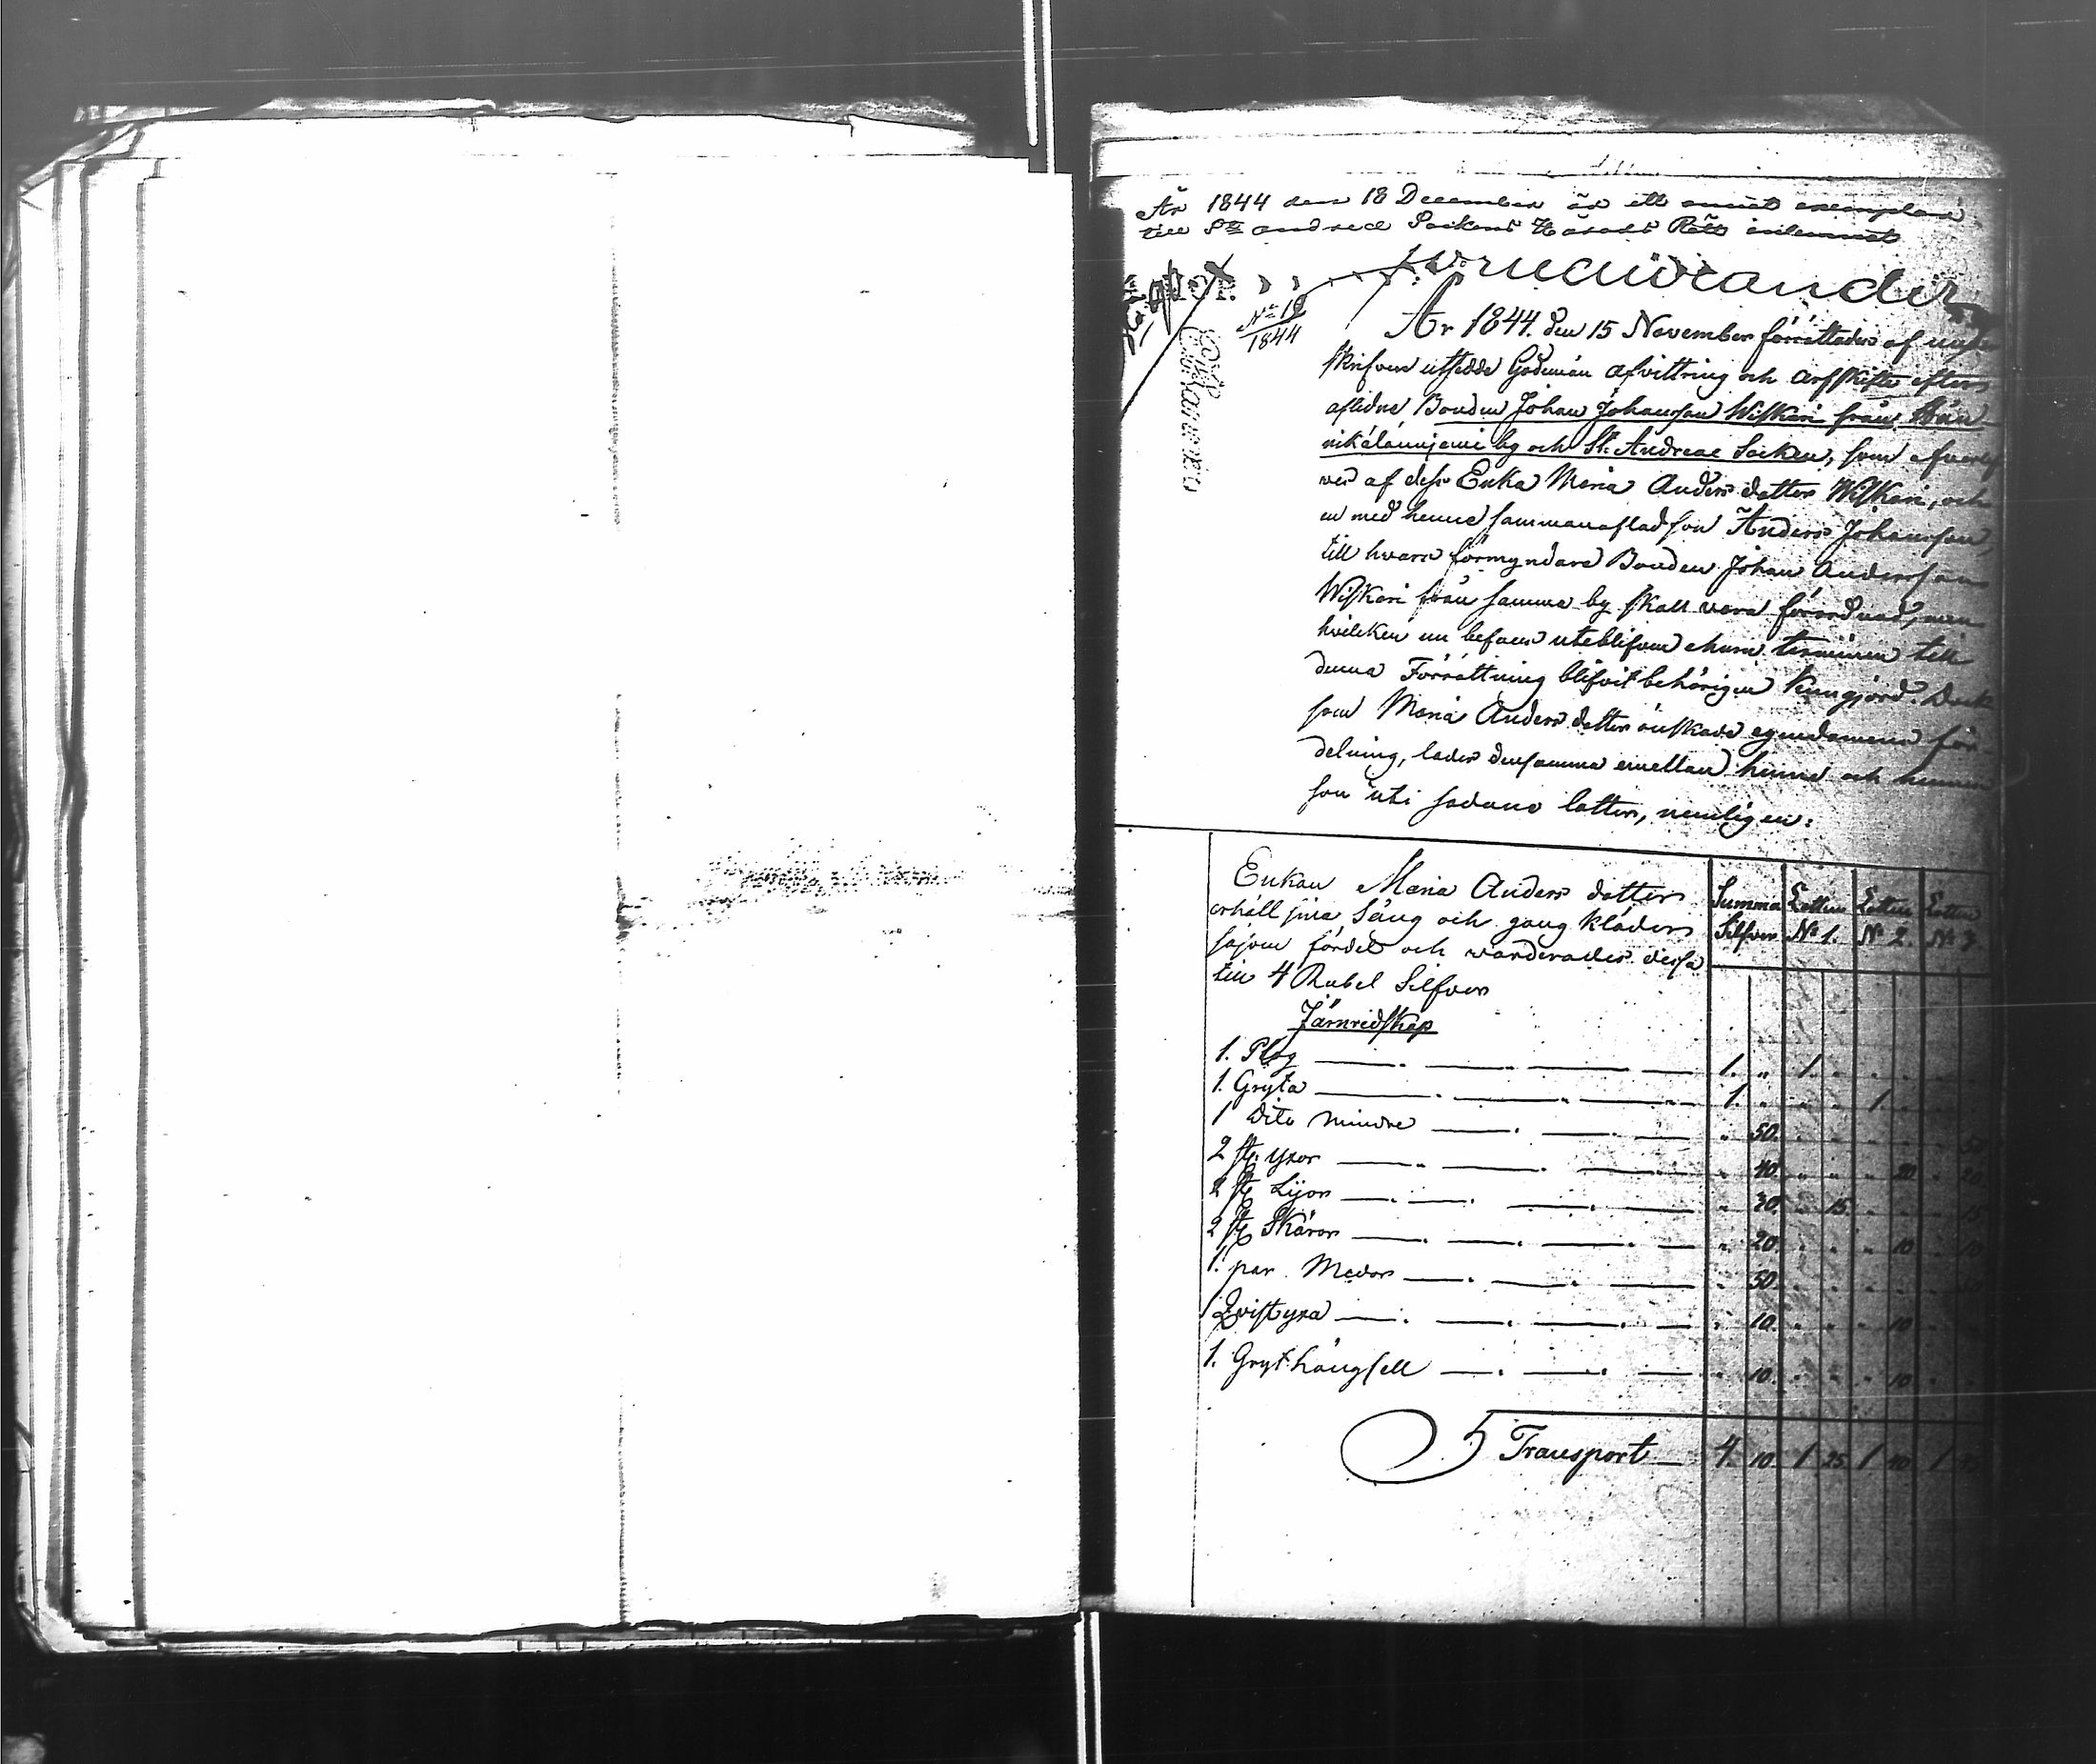 År 1844 den 18 December är ett annat exemplar
till S:t Andreæ Sockens Härads Rätt inlemnat
N:o 10
1844
År 1844 den 15 November förrättades af under
skrifven utsedde Godemän afvittring och arfskifte efter
aflidne Bonden Johan Johansson Wiskari från Hän
nikälännjemi by och S:t Andreae Socken, som efverlef
ves af dess Enka Maria Anders dotter Wiskari, och
en med henne sammanaflad son Anders Johansson,
till hvars förmyndare Bonden Johan Andersson
Wiskari från samma by skall vara förordnad, men
hvilcken nu befans utebliven ehuru terminen till
denna Förrättning blifvit behörigen kungjord. Dock
som Maria Anders dotter önskade egendomens för
delning, lades densamma emellan henne och hennes
son uti sådane lotter, nemligen:
Enkan Maria Anders dotter
erhöll sina Säng och gång kläder
såsom fördel och värderades dessa
till 4 Rubel Silfver
Summa Silfver Lotten N:o 1. Lotten N:o 2. Lotten N:o 3
Järnredskap
1. Plog 1. " 1. "
1. Gryta 1. " " " 1.
1 Dito Mindre " 50. 50
2 st. yxor " 40. " " " 20 " 20
2 st Lijor " 30. " 15 " " " 15
2 st Skäror " 20. " " " 10 " 10
1. par Medor " 50.
1 Qvistyxa " 10. " " " 10
1. Grythängsell " 10. " " " 10
Transport 4. 10. 1 25 1 40 1